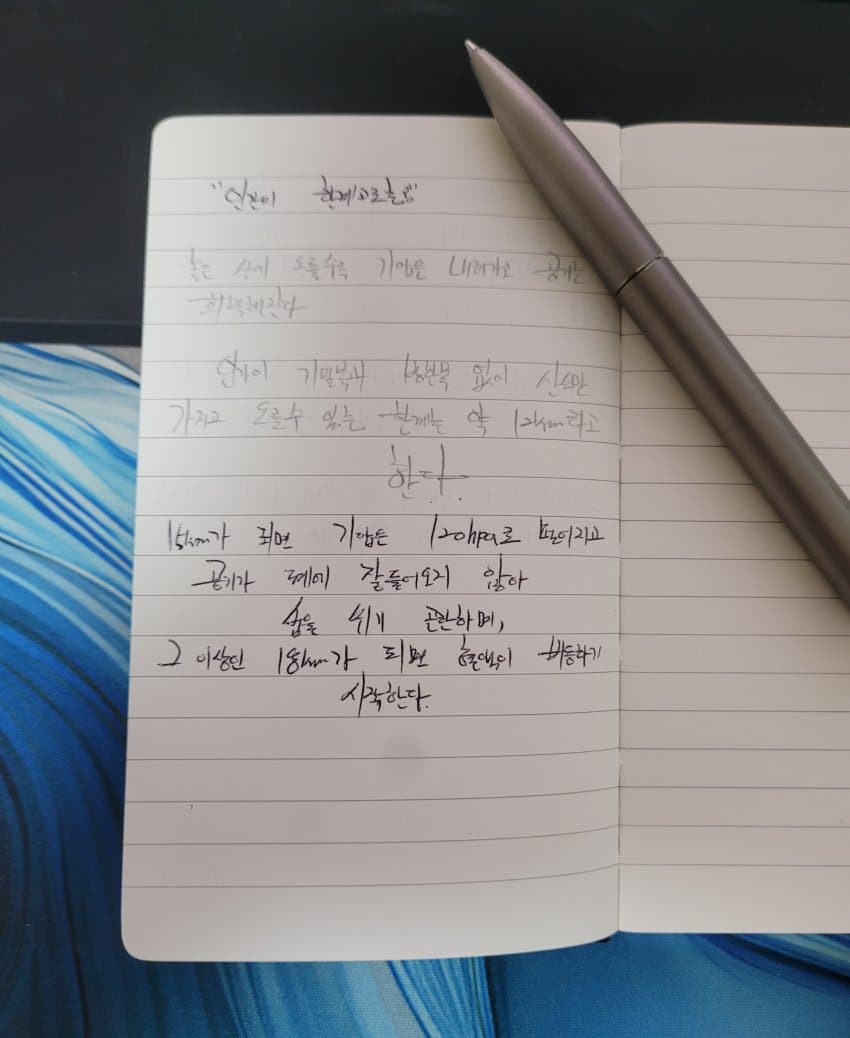 "인간이 한계고도흔용"
높은 산이 오를수록 기압은 내려가고 공기는
희박해진다
인간이 기밀복과 방한복 없이 산소만
가지고 오를수 있는 한계는 약 12km라고
한다.
15km가 되면 기압은 120hpa로 떨어지고
공기가 폐에 잘들어오지 않아
숨을 쉬기 곤란하며,
그 이상인 18km가 되면 혈액이 비등하기
시작한다.